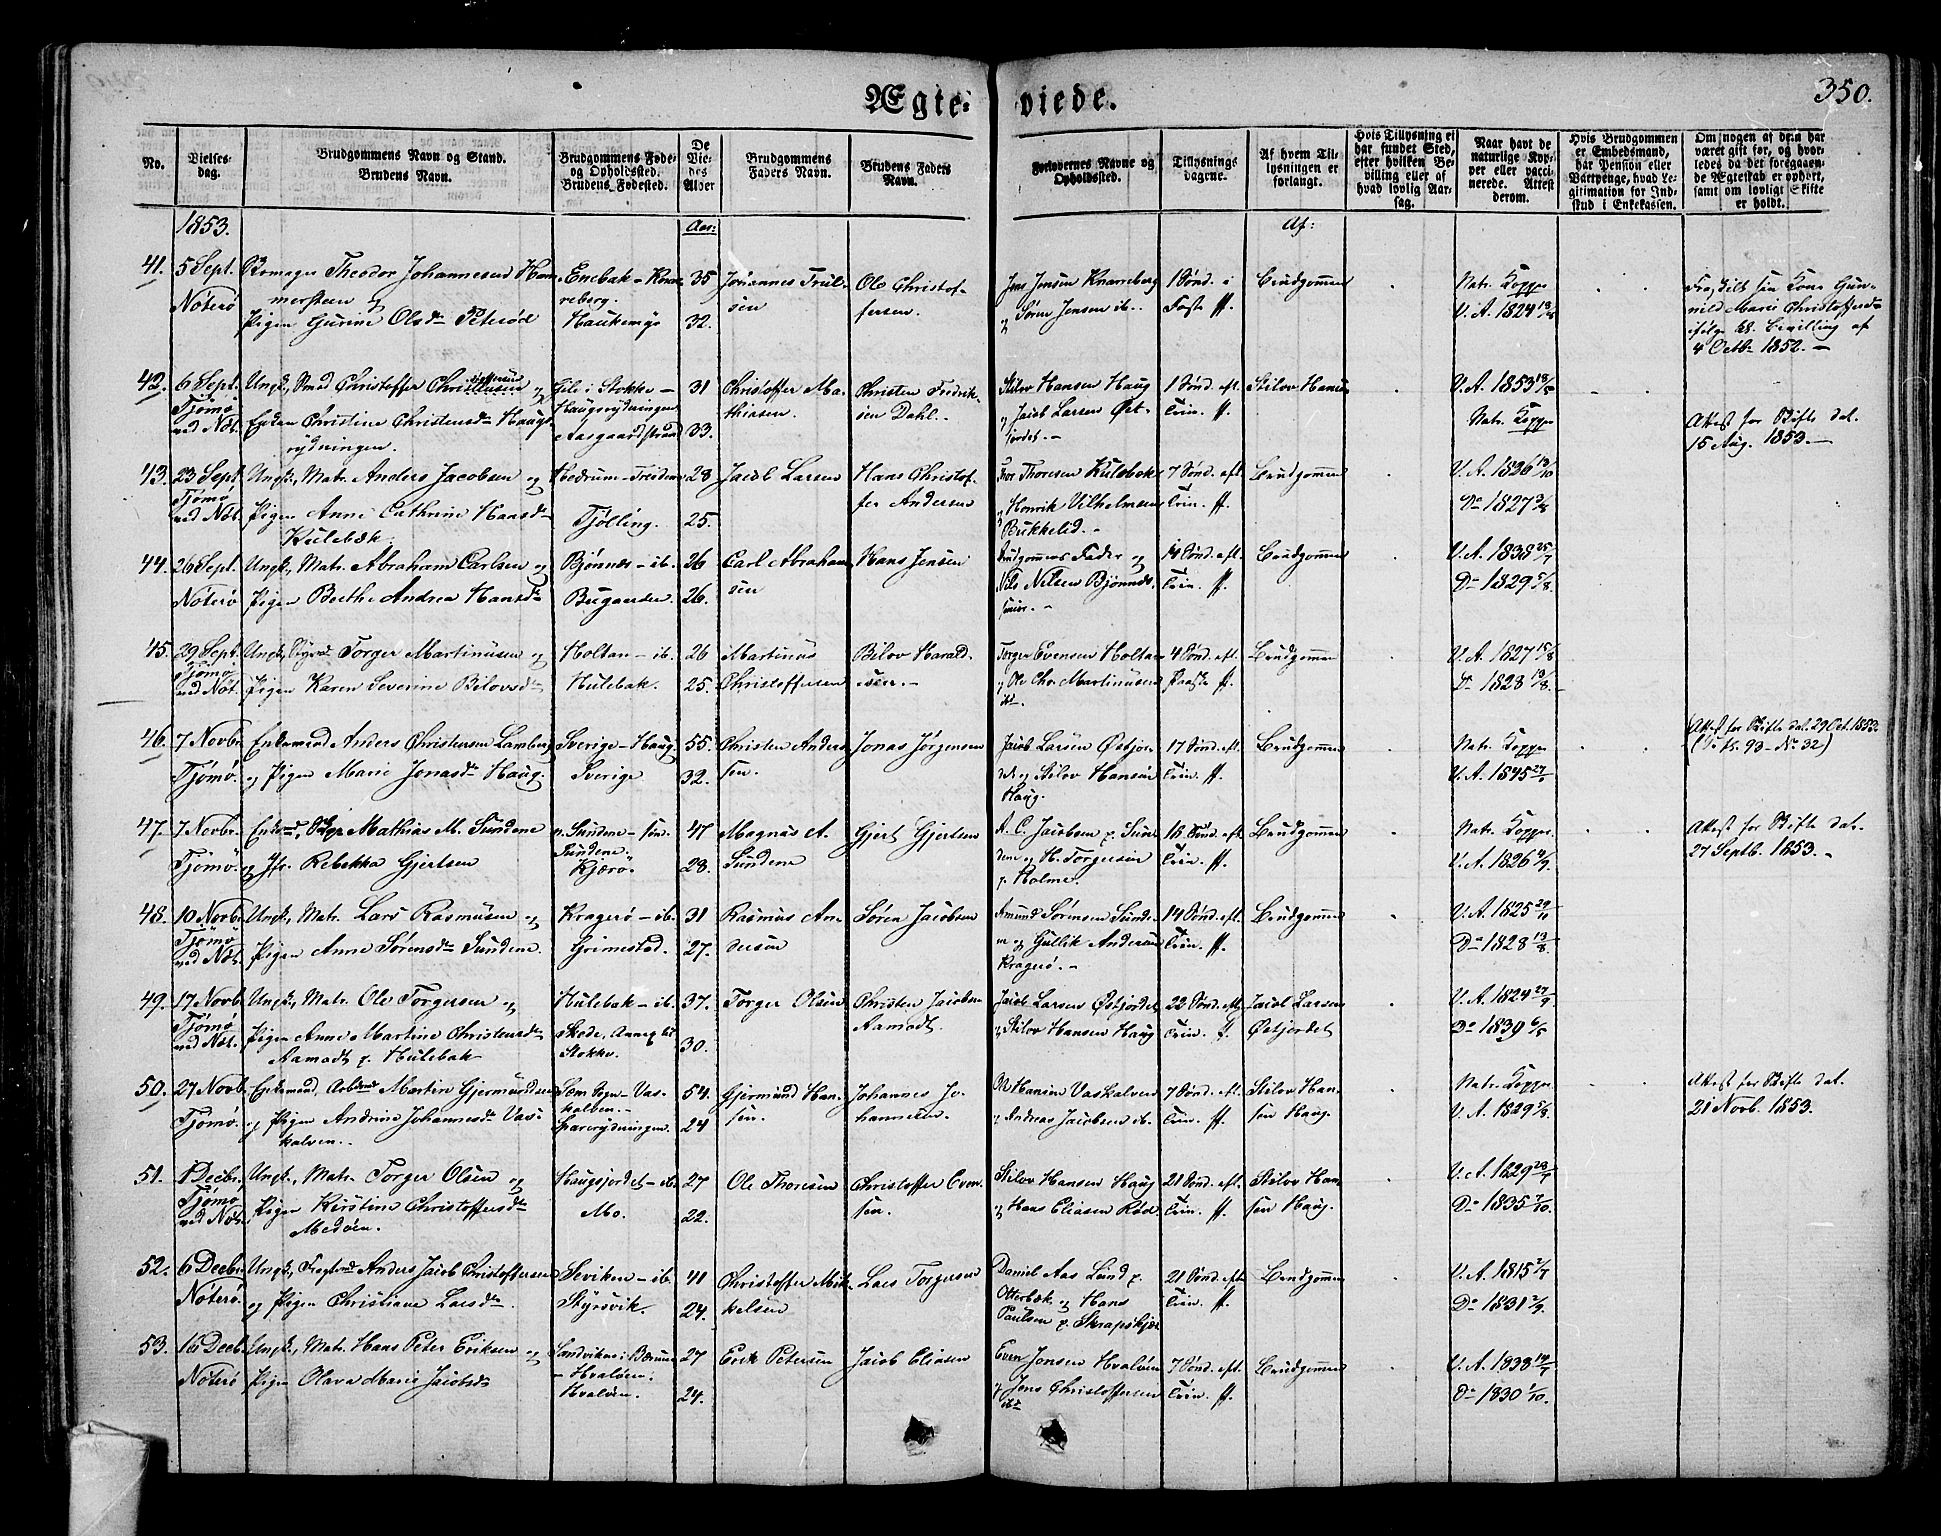 Ægte-viede.
350.
No.
Vielses-
dag.
Brudgommens Navn og Stand.
Brudens Navn.
Brudgommens Føde-
og Opholdssted.
Brudens Fødested.
De
Vie-
des
Alder
Brudgommens
Faders Navn.
Brudens Faders
Navn.
Forlovernes Navne og
Opholdssted.
Tillysnings
dagene.
Af hvem Til-
lysningen er
forlangt.
Hvis Tillysning ei
har fundet Sted,
efter hvilken Be-
villing eller af
hvad lovlig Aar-
sag.
Naar havt de
naturlige Kop-
per eller vacci-
nerede. Attest
derom.
Hvis Brudgommen
er Embedsmand,
har Pension eller
Vartpenge, hvad Le-
gitimation for Ind-
skud i Enkekassen.
Om nogen af dem har
været gift før, og hvor-
ledes da det foregaaen-
de Ægteskab er ophørt,
samt om lovligt Skifte
er holdt.
1853.
Aar:
Af:
41.
5 Sept.
Nøterø
Theodor Johannesen Ham-
mersteen og
Pigen Gurine Olsdr Peterød
Enebak - Knar-
reberg.
Haukemyr
35
32.
Johannes Trul-
sen
Ole Christof-
fersen.
Jens Jensen Knarreberg
og Søren Jensen ib.
1 Sønd. i
Faste ff.
Brudgommen
Natr. Kopper
V. A. 1824
Fraskilt fra Kone Gun-
nild Marie Christoffersdr
ifølge Bevilling af
4 Octb. 1852. -
42.
6 Sept.
Tjømø
ved Nøt.
Ungk, Smed Christoffer Christoffersen og
Enken Christine Christensdr Haugs-
rydningen.
i Stokke -
Haugsrydningen
Aasgaardstrand
31
33.
Christoffer Ma-
thiasen.
Christen Fredrik-
sen Dahl.
Stilov Hansen Haug
og Jacob Larsen Øst-
jordet. -
1 Sønd. eft.
Trin. ff.
Stilov Hansen
V. A. 1853
Natr. Kopper
Attest for Skifte dat.
15 Aug. 1853. -
43.
23 Sept.
Tjømø
ved Nøt.
Ungk, Matr. Anders Jacobsen og
Pigen Anne Cathrine Hansdr
Hulebæk.
Hedrum -
Tjølling.
28
25.
Jacob Larsen
Hans Christof-
fer Andersen
Thoresen Hulebak
og Henrik Vilhelmsen
Bukkelid. -
7 Sønd. eft.
Trin. ff.
Brudgommen
V. A. 1826
Do 1827
44.
26 Sept.
Nøterø
Ungk, Matr. Abraham Carlsen og
Pigen Berthe Andrea Hansdr
Bjønnæs - ib.
Bugaarden.
26
26.
Carl Abraham-
sen
Hans Jensen
Brudgommens Fader og
Nils Nilsen Bjønnes-
14 Sønd. eft.
Trin. ff.
Brudgommen
V. A. 1838
Do 1829 5/8.
45.
29 Sept.
Tjømø
ved Nøt.
Ungk, Torger Martinusen og
Pigen Karen Severine Bilovsdr
Holtan - ib.
Hulebak.
26
25.
Martinus
Christoffersen
Bilov Harald-
sen. -
Torger Evensen Holtan
og Ole Chr. Martinusen
ibd.
4 Sønd. eft.
Paaske ff.
Brudgommen
V. A. 1827
Do 1828
46.
7 Novbr.
Tjømø.
Enkemand Anders Christensen Lamberg
og Pigen Marie Jonasdr Haug.
Sverige - Haug
Sverige
55.
32.
Christen Anders-
sen.
Jonas Jørgensen
Jacob Larsen Østjor-
det og Stilov Hansen
Haug.
17 Sønd. eft.
Trin. ff.
Brudgommen
Natr. Kopper
V. A. 1845
Attest for Skifte dat. 29 Oct. 1853.
47.
7 Novbr.
Tjømø
Enkemd, Mathias M. Sundene
og Jfr. Rebekka Gjertsen
Sundene -
Sundene.
Kjærø.
47
28.
Magnus A.
Sundene
Gjert Gjertsen
A. C. Jacobsen p. Sun-
dene og H. Torgersen
p. Holme.
18 Sønd. eft.
Trin. ff.
Brudgommen
Natr. Kopper.
V. A. 1826
Attest for Skifte dat.
27 Septb. 1853. -
48.
10 Novbr.
Tjømø
ved Nøt.
Ungk, Matr. Lars Rasmusen og
Pigen Anne Sørensdr Sundene.
Kragerø - ib.
Grimestad.
31
27.
Rasmus An-
dersen
Søren Jacobsen
Amund Sørensen Sunde-
ne og Gullik Andersen
Kragerø. -
14 Sønd. eft.
Trin. ff.
Brudgommen
V. A. 1825
Do 1828 13/8.
49.
17 Novb.
Tjømø
ved Nøt.
Ungk, Matr. Ole Torgersen og
Pigen Anne Martine Christensdr
Aamodt p. Hulebak
Hulebak - ib.
Skode, Annex til
Stokke.
37.
30.
Torger Olsen
Christen Jacobsen
Aamodt.
Jacob Larsen Østjordet
og Stilov Hansen Haug
22 Sønd. eft.
Trin. ff.
Jacob Larsen
Østjordet
V. A. 1824 27/9.
Do 1839 6/5
50.
27 Novb.
Tjømø.
Enkemand, Arbmd Martin Gjermundsen
og Pigen Andrine Johannesdr Vas-
kalven.
Sem Sogn - Vas-
kalven. -
54.
24
Gjermund Han-
sen.
Johannes Jo-
hannesen.
Ol Hansen Vaskalven
og Andreas Jacobsen ib.
7 Sønd. eft.
Trin. ff.
Stilov Han-
sen Haug.
Natr. Kopper.
V. A. 1829 5/8.
Attest for Skifte dat.
21 Novb. 1853.
51.
1 Decbr.
Tjømø
ved Nøt.
Ungk, Matr. Torger Olsen og
Pigen Kirstine Christoffersdr
Medøen.
Haugsjordet - ib.
Mo.
27
22.
Ole Thoresen
Christoffer Even-
sen.
Stilov Hansen Haug
og Hans Eliasen Rød.
21 Sønd. eft.
Trin. ff.
Stilov Han-
sen Haug.
V. A. 1829
Do 1835 7/10.
52.
6 Decbr.
Nøterø.
Ungk, Anders Jacob Christoffersen
og Pigen Christiane Larsdr.
Seviken - ib.
Styrsvik.
41
24.
Christoffer Mik-
kelsen
Lars Torgersen
Daniel Aas Lund p.
Otterbæk og Hans
Paulsen p. Skrapeskjær
21 Sønd. eft.
Trin. ff.
Brudgommen
V. A. 1815
Do 1831 2/9.
53.
16 Decb.
Nøterø
Ungk, Matr. Hans Peter Eriksen og
Pigen Olava Marie Jacobsdr
Sandviken i Bærum
- Hvaløen.
Hvaløen.
27
24.
Erik Petersen
Jacob Eliasen
Even Jensen Hvaløen
og Jens Christoffersen
ibd.
7 Sønd. eft.
Trin. ff.
Brudgommen
V. A. 1838
Do 1830 1/10.